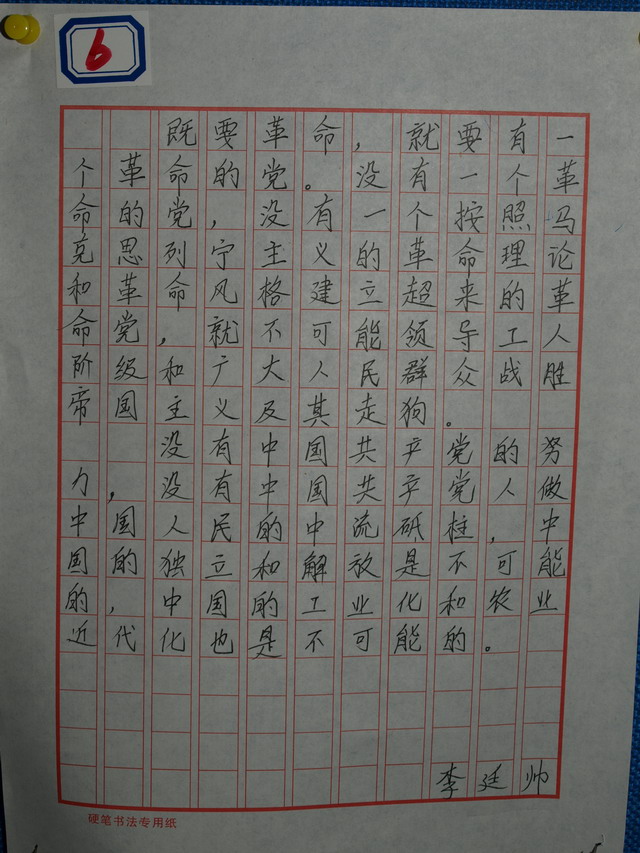 6
既要革命，就要有一
个革命的党。没有一个革
命的党，没有一个按照马
克思列宁主义的革命理论
和革命风格建立超来的革
命党，就不可能领导工人
阶级和广大人民群众战胜
帝国主义及其走狗。
没有中国共产党的努
力，没有中国共产党人做
中国人民的中流砥柱，中
国的独立和解放是不可能
的，中国的工业化和农业
近代化也是不可能的。
李廷帅
硬笔书法专用纸